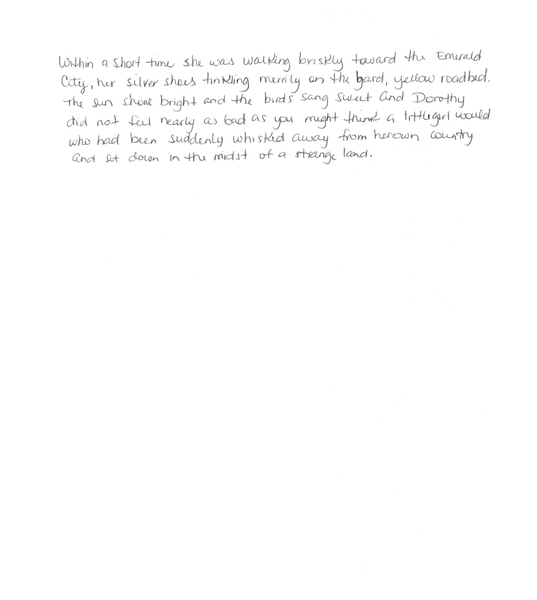 Within a short time she was walking briskly toward the Emerald
City, her silver shoes tinkling merrily on the hard, yellow roadbed.
The sun shone bright and the birds sang sweet and Dorothy
did not feel nearly as bad as you might think a little girl would
who had been suddenly whisked away from her own country
and set down in the midst of a strange land.